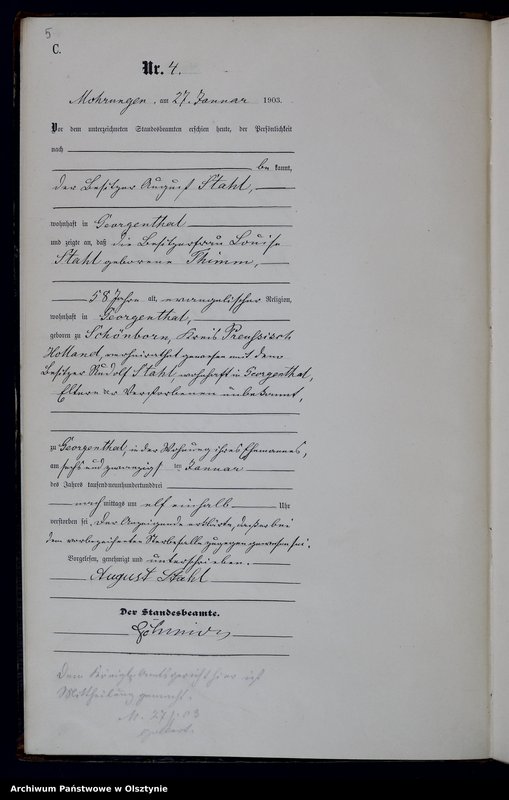 5
C.
Nr. 4.
Mohrungen, am 27. Januar 1903.
Vor dem unterzeichneten Standesbeamten erschien heute, der Persönlichkeit
nach
be kannt,
der Besitzer August Stahl,
wohnhaft in Georgenthal
und zeigte an, daß die Besitzerfrau Louise
Stahl geborene Thimm,
58 Jahre alt, evangelischer Religion,
wohnhaft in Georgenthal,
geboren zu Schönborn, Kreis Preußisch
Holland, verheirathet gewesen mit dem
Besitzer Rudolf Stahl, wohnhaft in Georgenthal,
Eltern der Verstorbenen unbekannt,
zu Georgenthal, in der Wohnung ihres Ehemannes,
am sechs und zwanzigsten Januar
des Jahres tausendneunhundertunddrei
nach mittags um elf einhalb Uhr
verstorben sei. Der Anzeigende erklärte, daß er bei
dem vorbezeichneten Sterbefalle zugegen gewesen sei.
Vorgelesen, genehmigt und unterschrieben.
August Stahl
Der Standesbeamte.
Dem Königl. Amtsgericht hier ist
Mittheilung gemacht.
M. 27/1. 03
Archiwum Państwowe w Olsztynie